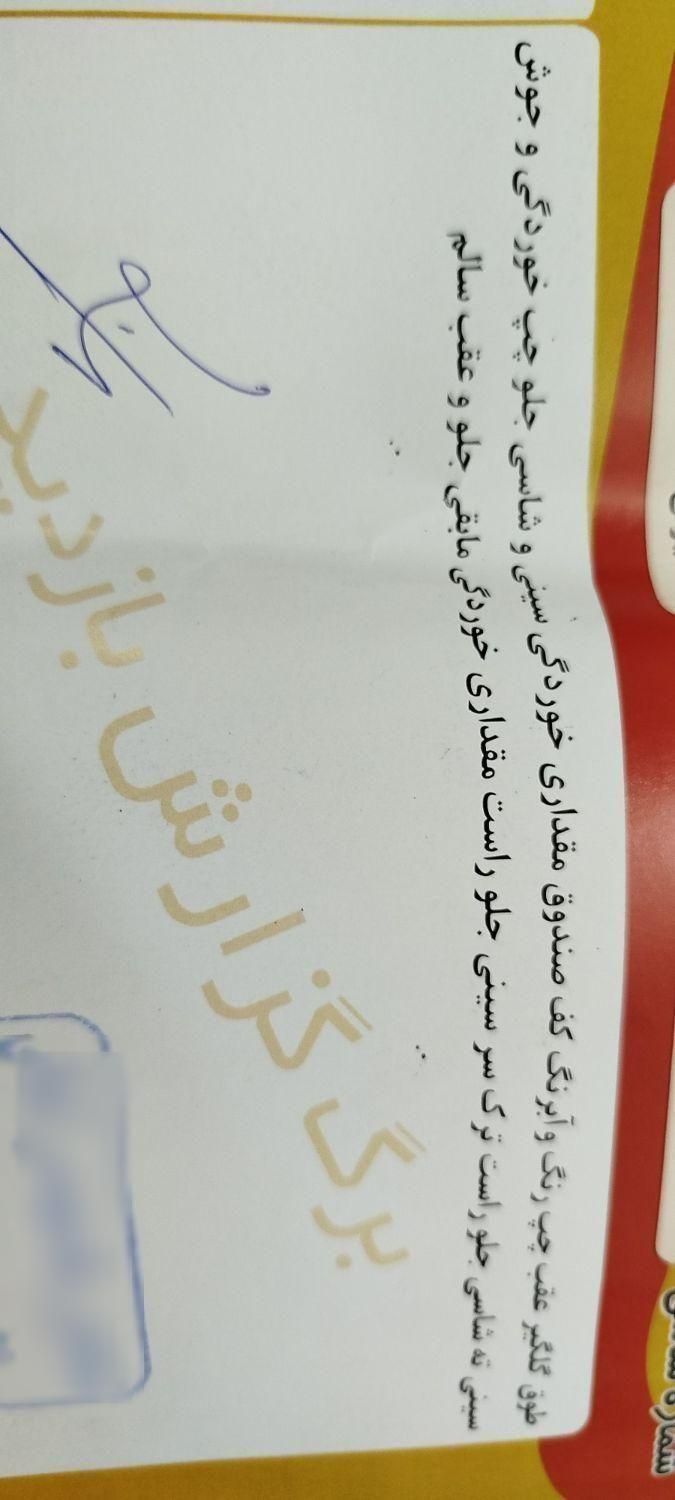 طوق گلگیر عقب چپ رنگ و آبرنگ کف صندوق مقداری خوردگی سینی و شاسی جلو چپ خوردگی و جوش
سینی ته شاسی جلو راست ترک سر سینی جلو راست مقداری خوردگی مابقی جلو و عقب سالم
برگ گزارش بازدید